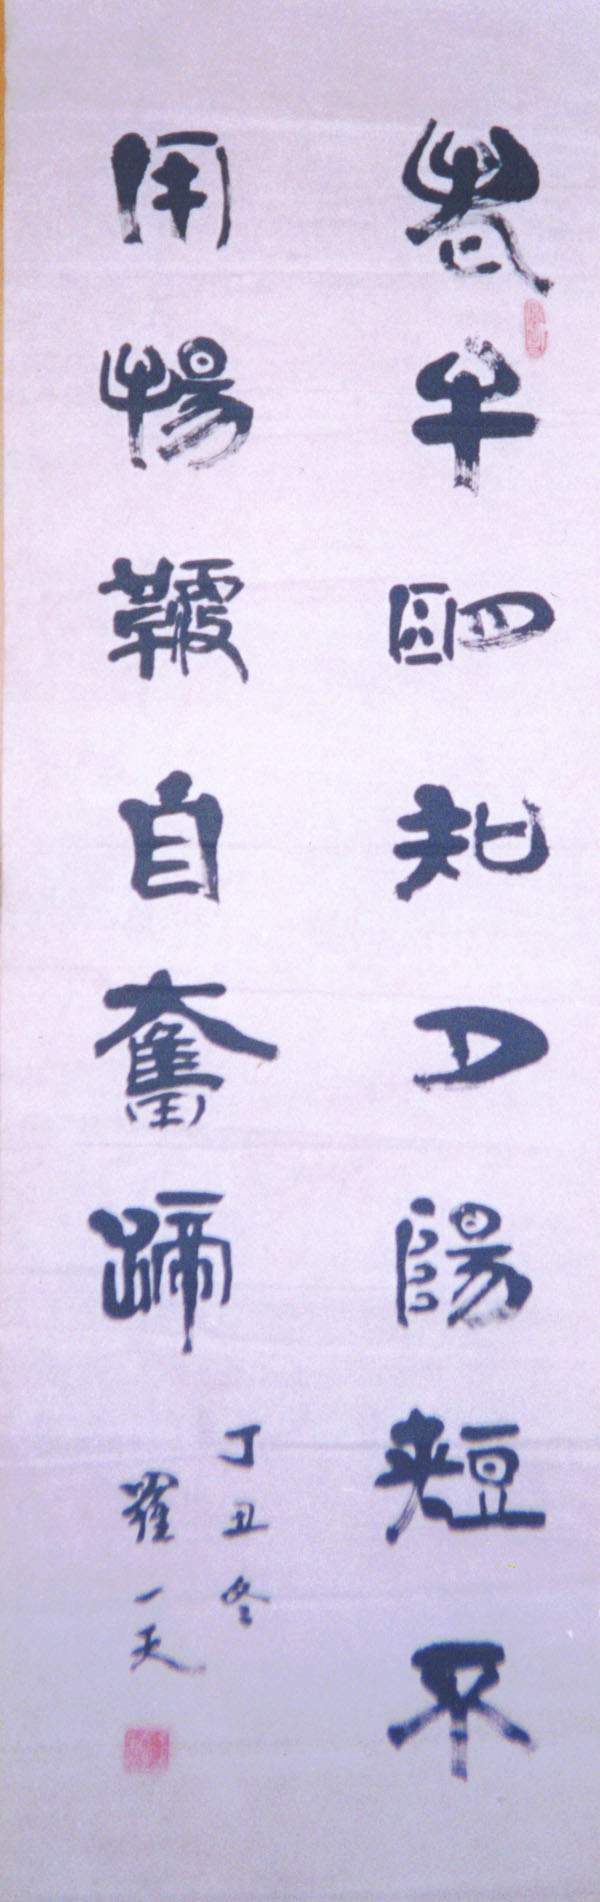 老牛明知夕陽短不
用揚鞭自奮蹄
丁丑冬
羅一天